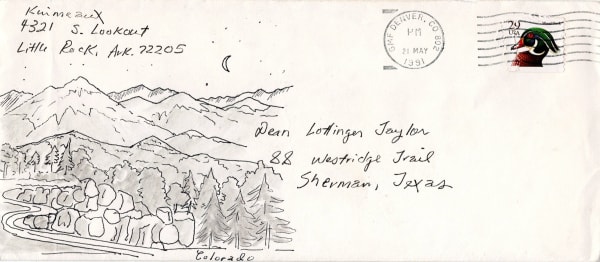 Kinmeaux
4321 S. Lookout
Little Rock, Ark. 72205
GMF DENVER, CO 802
PM
21 MAY
1991
29
USA
Dean Lottinger Taylor
88 Westridge Trail
Sherman, Texas
Colorado